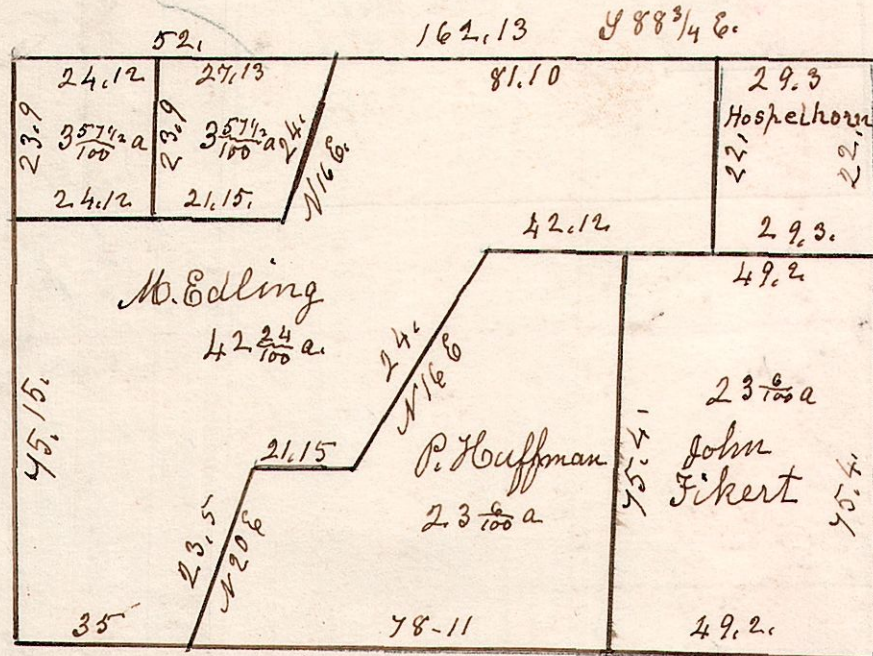 52. 162.13 S 88 3/4 E.
24.12 27.13 81.10 29.3
Hospelhorn
23.9 3 57 1/2/100 a 23.9 3 57 1/2/100 a 24. N16E. 22. 22.
24.12 21.15. 29.3.
42.12
49.2.
M. Edling
42 24/100 a.
24. N16E
23 6/100 a
75.15.
21.15 P. Huffman 75.4. John
Fikert 75.4.
23 6/100 a
23.5 N20E
35 78-11 49.2.